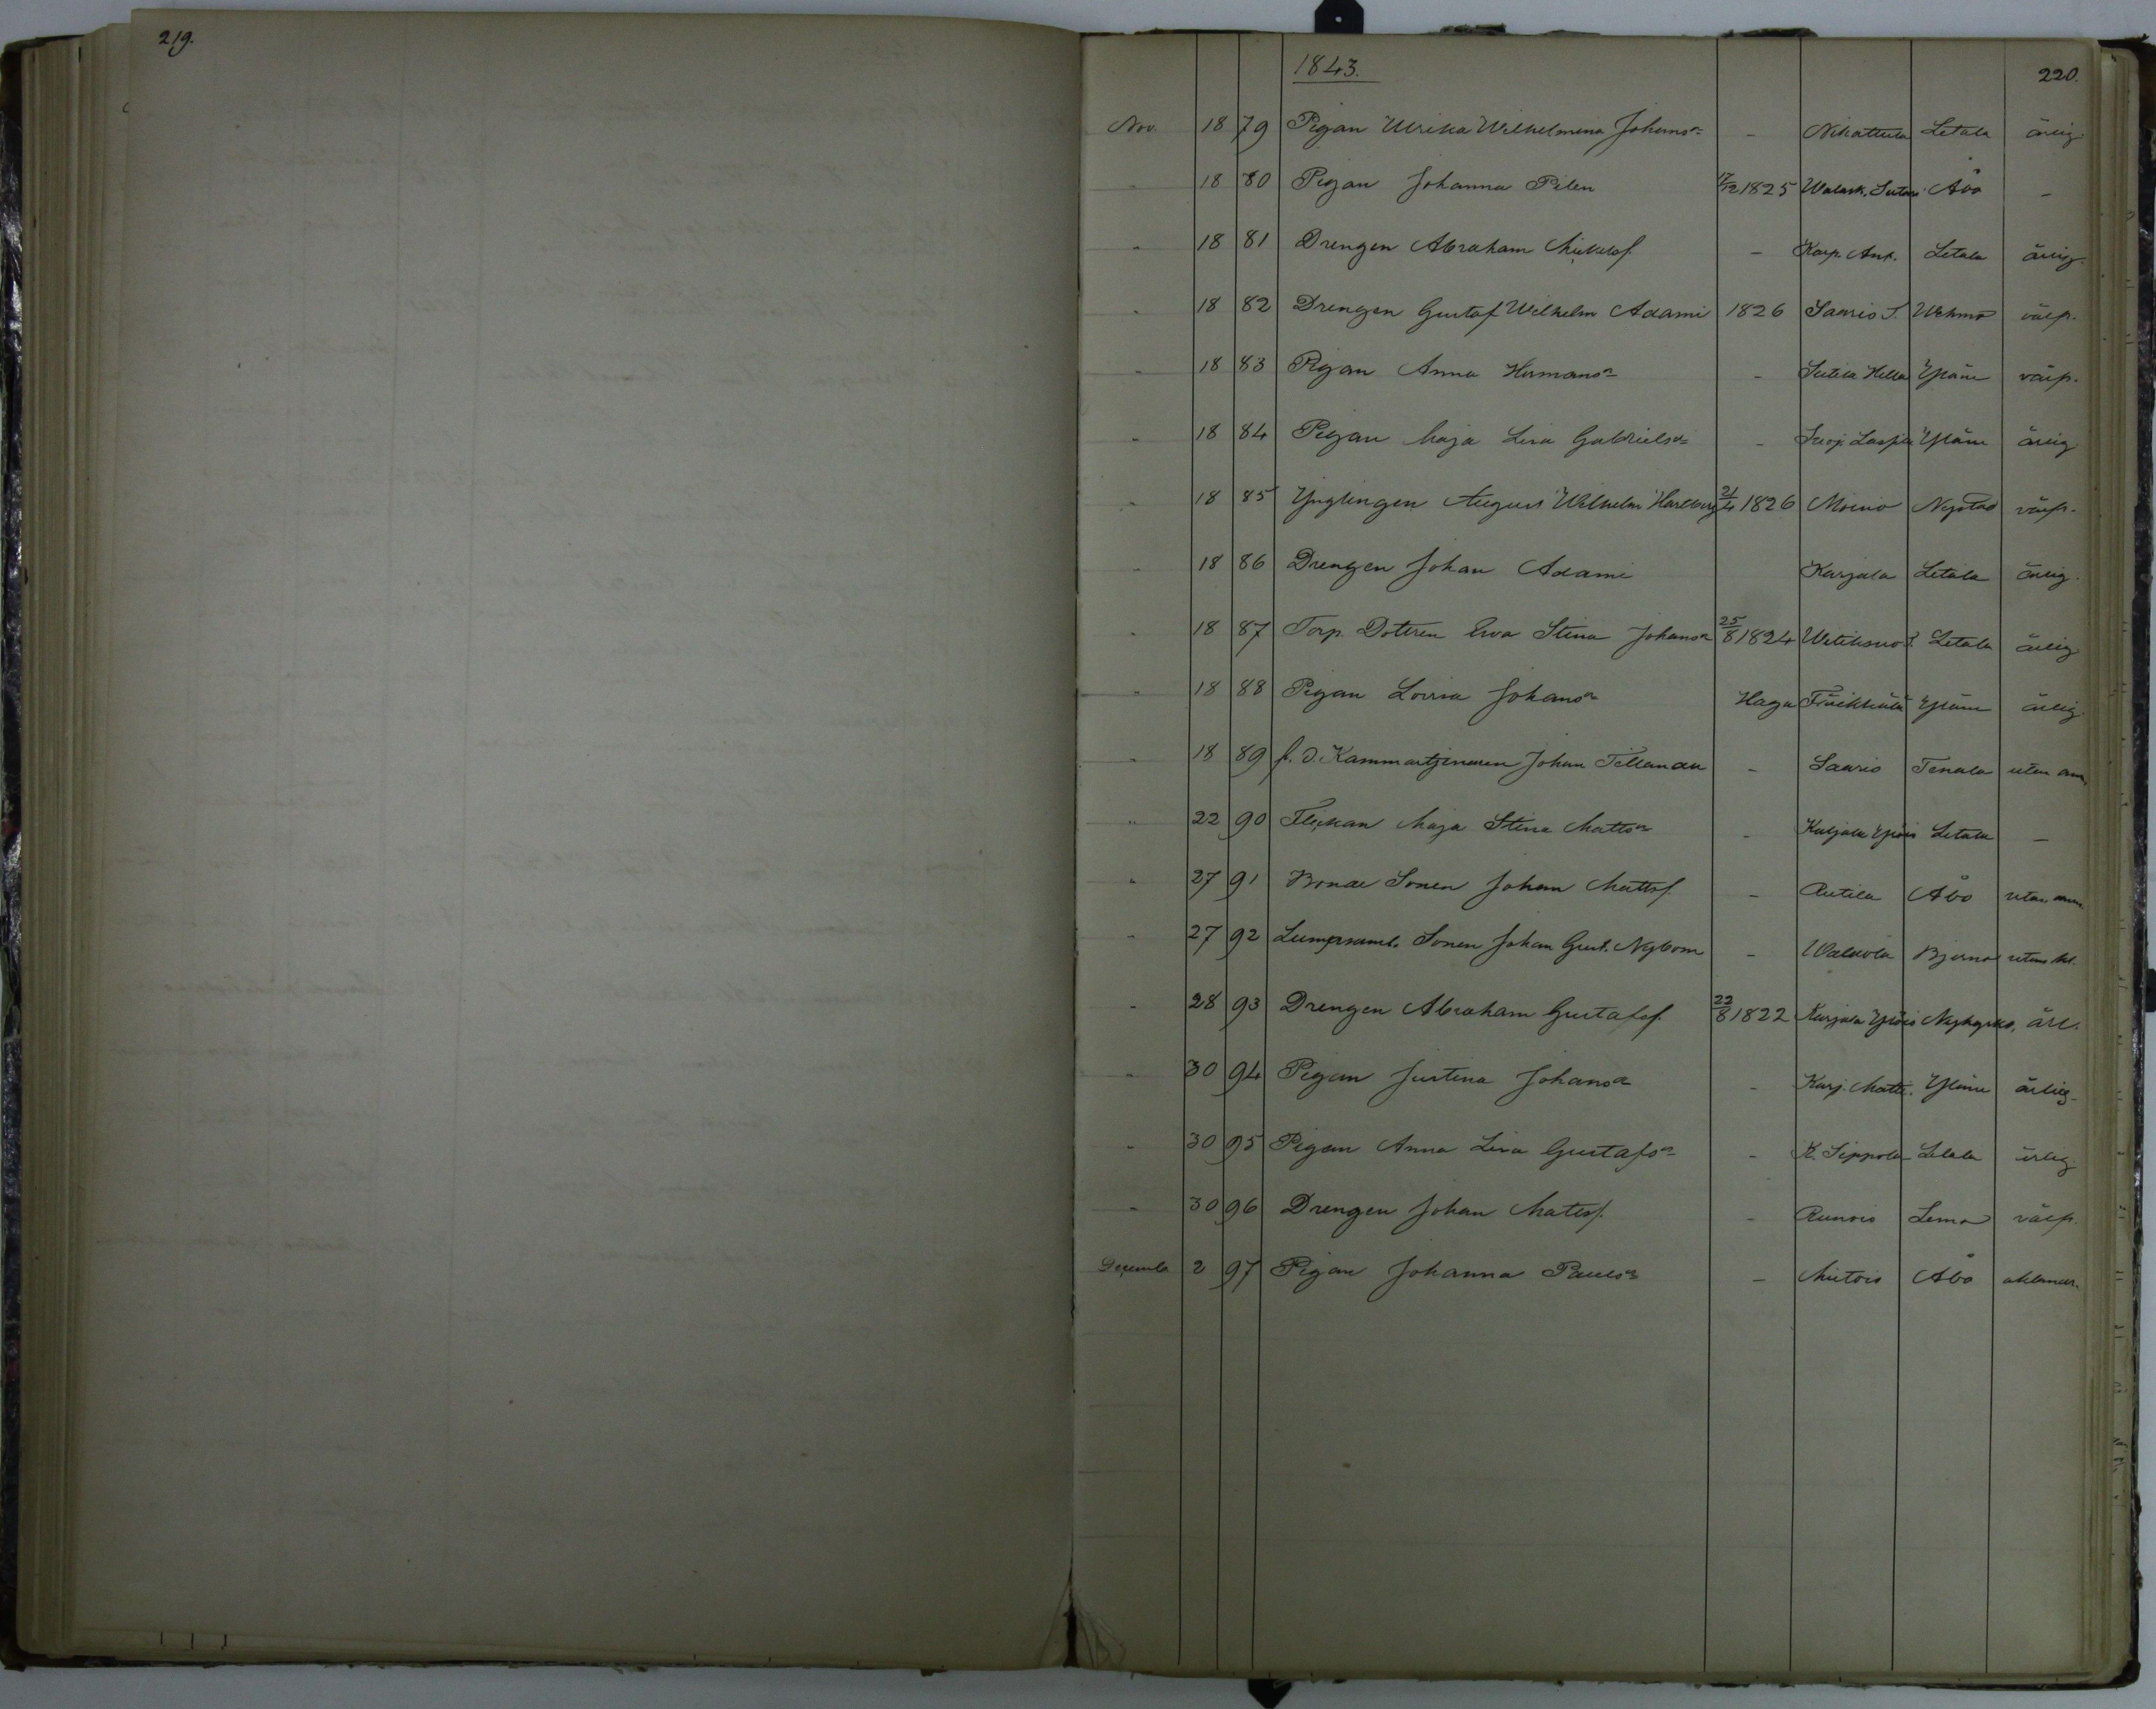 219.
1843.
220.
Nov. 18 79 Pigan Ulrika Wilhelmina Johansr - Nikattula Letala ärlig
" 18 80 Pigan Johanna Pilen 17/12 1825 Walask. Åbo -
" 18 81 Drengen Abraham Mickelsf. - Karp. Ant. Letala ärlig.
" 18 82 Drengen Gustaf Wilhelm Adami 1826 Saaris S. Wehmo välfr.
" 18 83 Pigan Anna Hermansr - Yläne välfr.
" 18 84 Pigan Maja Lisa Gabrielsr - Yläne ärlig
" 18 85 Ynglingen August Wilhelm Harlberg 21/4 1826 Moino Nystad välfr.
" 18 86 Drengen Johan Adami Karjala Letala ärlig.
" 18 87 Torp. Dotren Ewa Stina Johansr 25/8 1824 Letala ärlig
" 18 88 Pigan Lovisa Johansr Haga Träskkulä Yläne ärlig
" 18 89 f. d. Kammartjenaren Johan Tillander - Saaris Tenala utan anm.
" 22 90 Flickan Maja Stina Mattsr - Kaljala Yläis Letala -
" 27 91 Bonde Sonen Johan Mattsf. - Autila Åbo utan anm.
" 27 92 Lumpsaml. Sonen Johan Gust. Nybom - Walaola Bjerno utan
" 28 93 Drengen Abraham Gustafsf. 22/8 1822 Karjala Yläis Nykyrko, ärl.
" 30 94 Pigan Justina Johansr - Karj. Matti. Yläne ärlig
" 30 95 Pigan Anna Lisa Gustafsr - K. Sippola Letala ärlig
" 30 96 Drengen Johan Matssf. - Runois Lemo välfr.
Decemb. 2 97 Pigan Johanna Paulsr - Mietois Åbo oklandr.